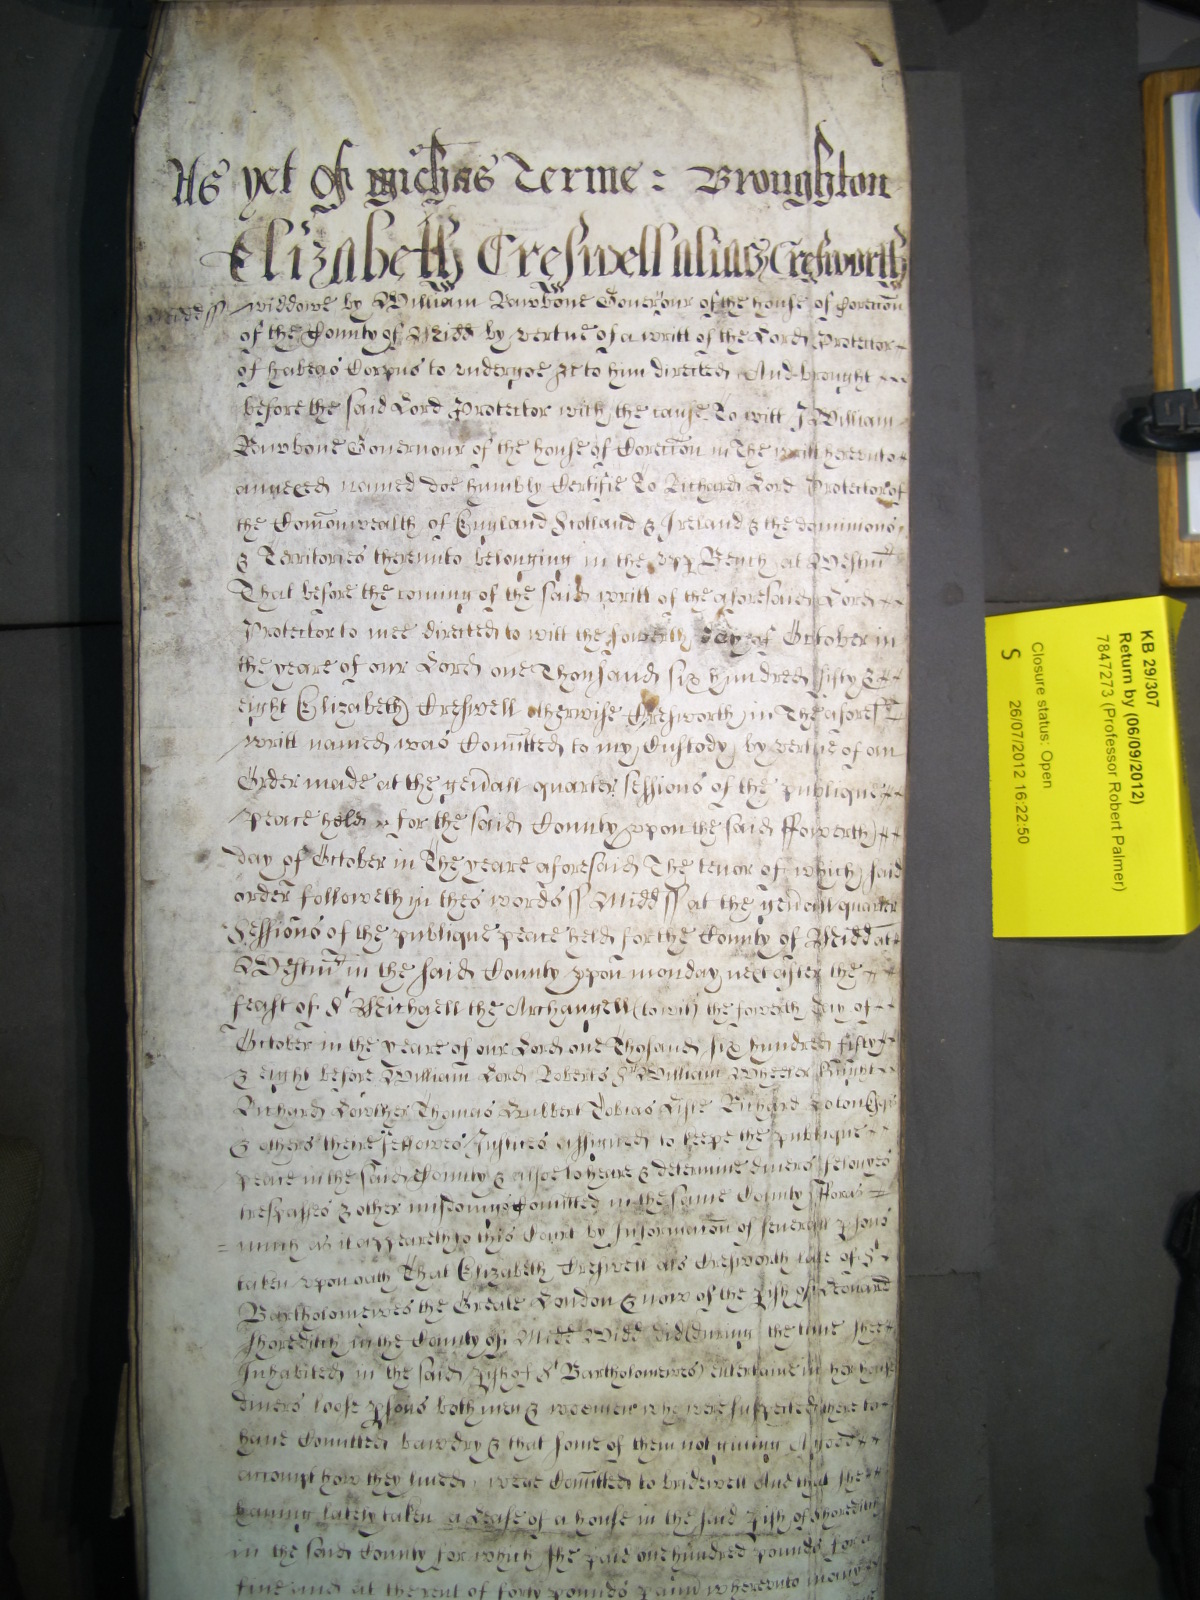 As yet of Michas Terme : Broughton
Elizabeth Creswell alias Cresworth
Midd ss widdowe by William Rawbone Governour of the house of Coreccon
of the County of Midd by vertue of a writt of the Lord Protector
of habeas Corpus to undergoe &c to him directed And brought
before the said Lord Protector with the cause To witt I William
Rawbone Governour of the house of Coreccon in the writt hereunto
annexed named doe humbly Certifie To Richard Lord Protector of
the Comonwealth of England Scotland & Ireland & the dominions
& Territories thereunto belonging in the upp Bench at Westm
That before the coming of the said writt of the aforesaid Lord
Protector to mee directed to witt the fowerth day of October in
the yeare of our Lord one Thousand six hundred fifty &
eight Elizabeth Creswell otherwise Cresworth in The afores
writt named was Comitted to my Custody by vertue of an
Order made at the genall quarter sessions of the publique
peace held for the said County upon the said ffowerth
day of October in The yeare aforesaid The tenor of which said
order followeth in thes words ss Midd ss at the genall quarter
Sessions of the publique peace held for the County of Midd att
Westm in the said County upon monday next after the
feast of St Michaell the Archangell (to wit) the fowerth day of
October in the yeare of our Lord one Thosand six hundred fifty
& eight before William Lord Roberts Sr William Wheeler Knight
Richard Lowther Thomas Hubbert Tobias Lisle Richard
& others there ffellowes Justices assigned to keepe the publique
peace in the said County & alsoe to heare & determine divers felonyes
trespasses & other misdoings Comitted in the same County fforas
= much as it appeareth to this Court by Informacon of severall psons
taken upon oath That Elizabeth Creswell als Cresworth late of St
Bartholomewes the Greate London & now of the pish of Leonard
Shoreditch in the County of Midd Widd did (during the time shee
Inhabited in the said pish of St Bartholomewes) entertaine in her house
divers loose psons both men & woemen who were suspected there to
have Comitted bawdry & that some of them not giving A good
accompt how they lived were Comitted to bridewell And that shee
having lately taken a Lease of a house in the said pish of Shoreditch
in the said County for which she paid one hundred pounds for a
fine and at the rent of forty pounds p ann whereunto many
KB 29/307
Return by (06/09/2012)
7847273 (Professor Robert Palmer)
Closure status: Open
S 26/07/2012 16:22:50